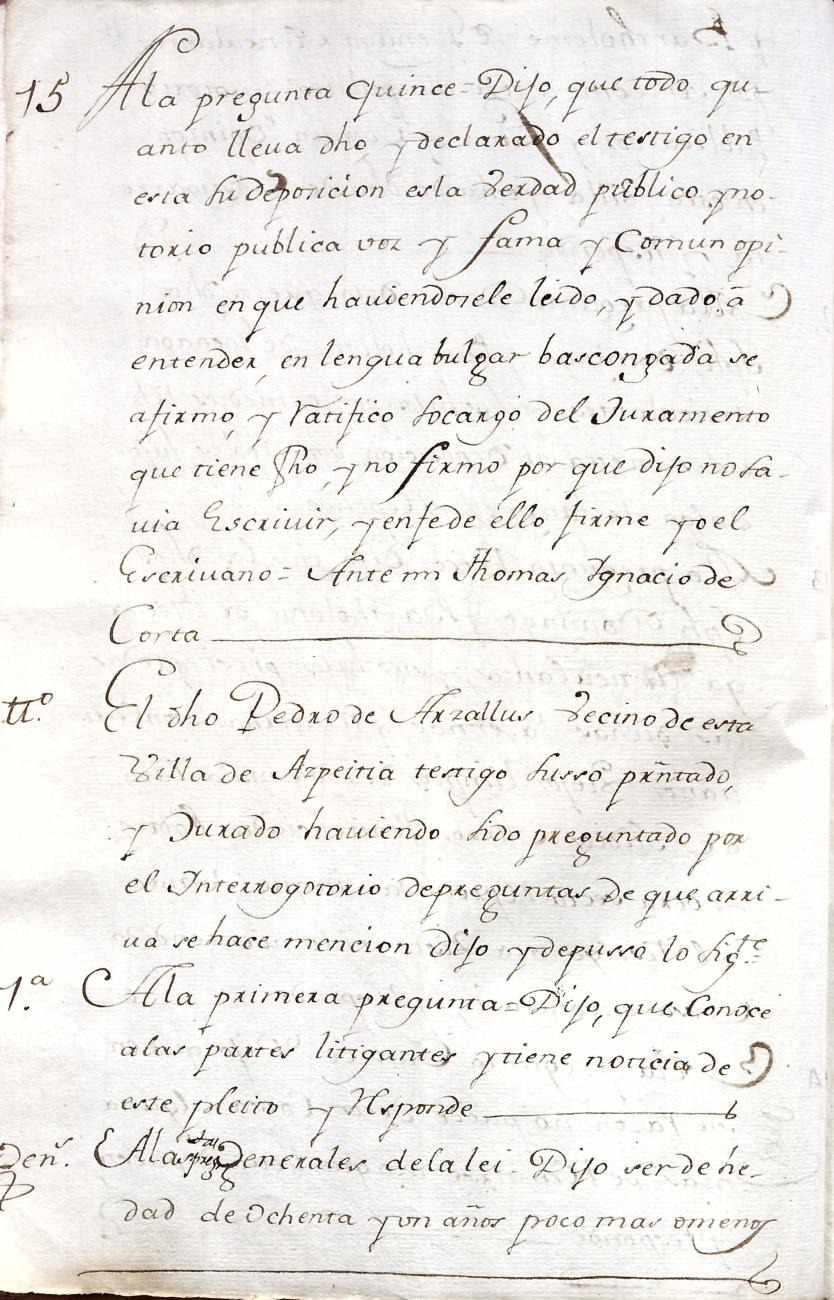 15 A la pregunta Quince = Dijo, que todo qu-
anto lleva dho y declarado el testigo en
esta su deposicion es la verdad publico y no-
torio publica voz y fama y Comun opi-
nion en que haviendosele leido, y dado â
entender, en lengua bulgar bascongada se
afirmo, y Ratifico socargo del Juramento
que tiene fho, y no firmo por que dijo no sa-
via Escrivir, y enfe de ello firme yo el
Escrivano = Ante mi Thomas Ignacio de
Corta
tt.º El dho Pedro de Arzallus Vecino de esta
Villa de Azpeitia testigo susso prntado,
y Jurado haviendo sido preguntado por
el Interrogotorio de preguntas de que arri-
va se hace mencion Dijo y depusso lo sigte
1.ª A la primera pregunta = Dijo, que Conoce
a las partes litigantes y tiene noticia de
este pleito y Responde
Jens. A las Jenerales de la lei Dijo ser de he-
dad de Ochenta y un años poco mas o menos